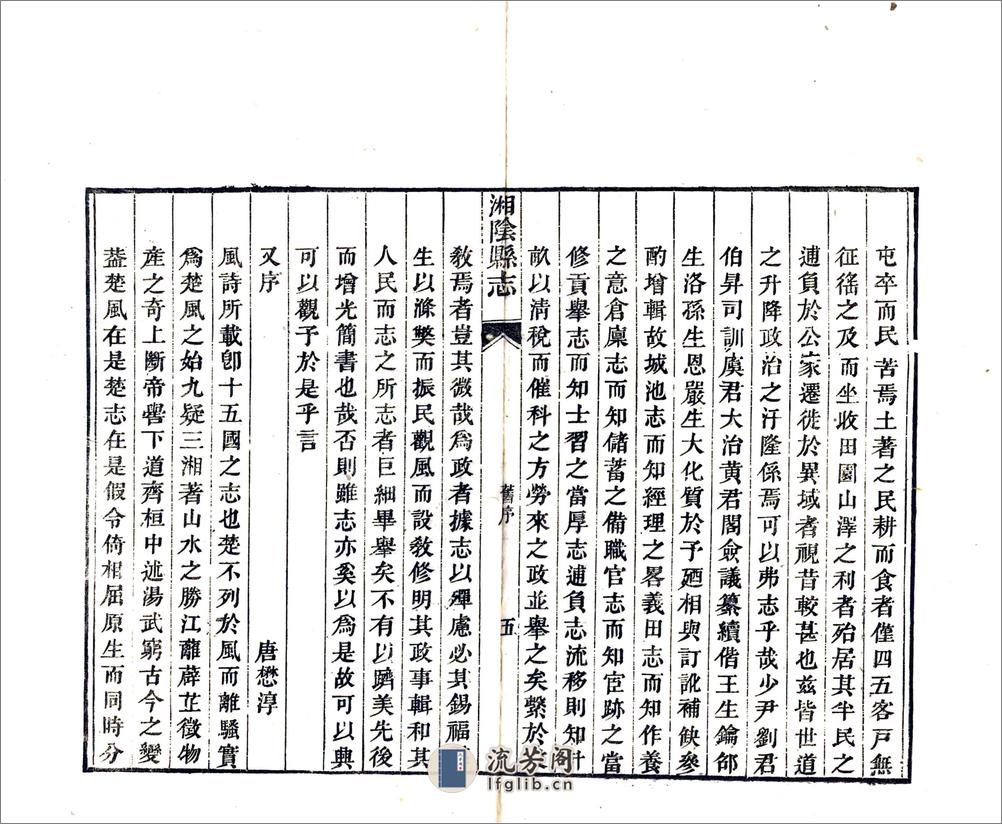 屯卒而民苦焉土著之民耕而食者僅四五客戸無
征徭之及而坐收田園山澤之利者殆居其半民之
逋負於公家遷徙於異域者視昔較甚也兹皆世道
之升降政治之汙隆係焉可以弗志乎哉少尹劉君
伯昇司訓虞君大治黄君閣僉議纂續偕王生鑰邰
生洛孫生恩嚴生大化質於予廼相與訂訛補缺參
酌增輯故城池志而知經理之畧義田志而知作養
之意倉廪志而知儲蓄之備職官志而知宦跡之當
修貢舉志而知士習之當厚志逋負志流移則知計
畝以清稅而催科之方勞來之政並舉之矣繫於
湘陰縣志
舊序
五
敎焉者豈其微哉爲政者據志以殫慮必其錫福
生以滌獘而振民觀風而設敎修明其政事輯和其
人民而志之所志者巨細畢舉矣不有以躋美先後
而增光簡書也哉否則雖志亦奚以爲是故可以典
可以觀予於是乎言
又序
唐懋淳
風詩所載卽十五國之志也楚不列於風而離騷實
爲楚風之始九疑三湘著山水之勝江蘺薜芷徵物
產之奇上斷帝嚳下道齊桓中述湯武窮古今之變
葢楚風在是楚志在是假令倚相屈原生而同時分
流芳阁
lfglib.cn